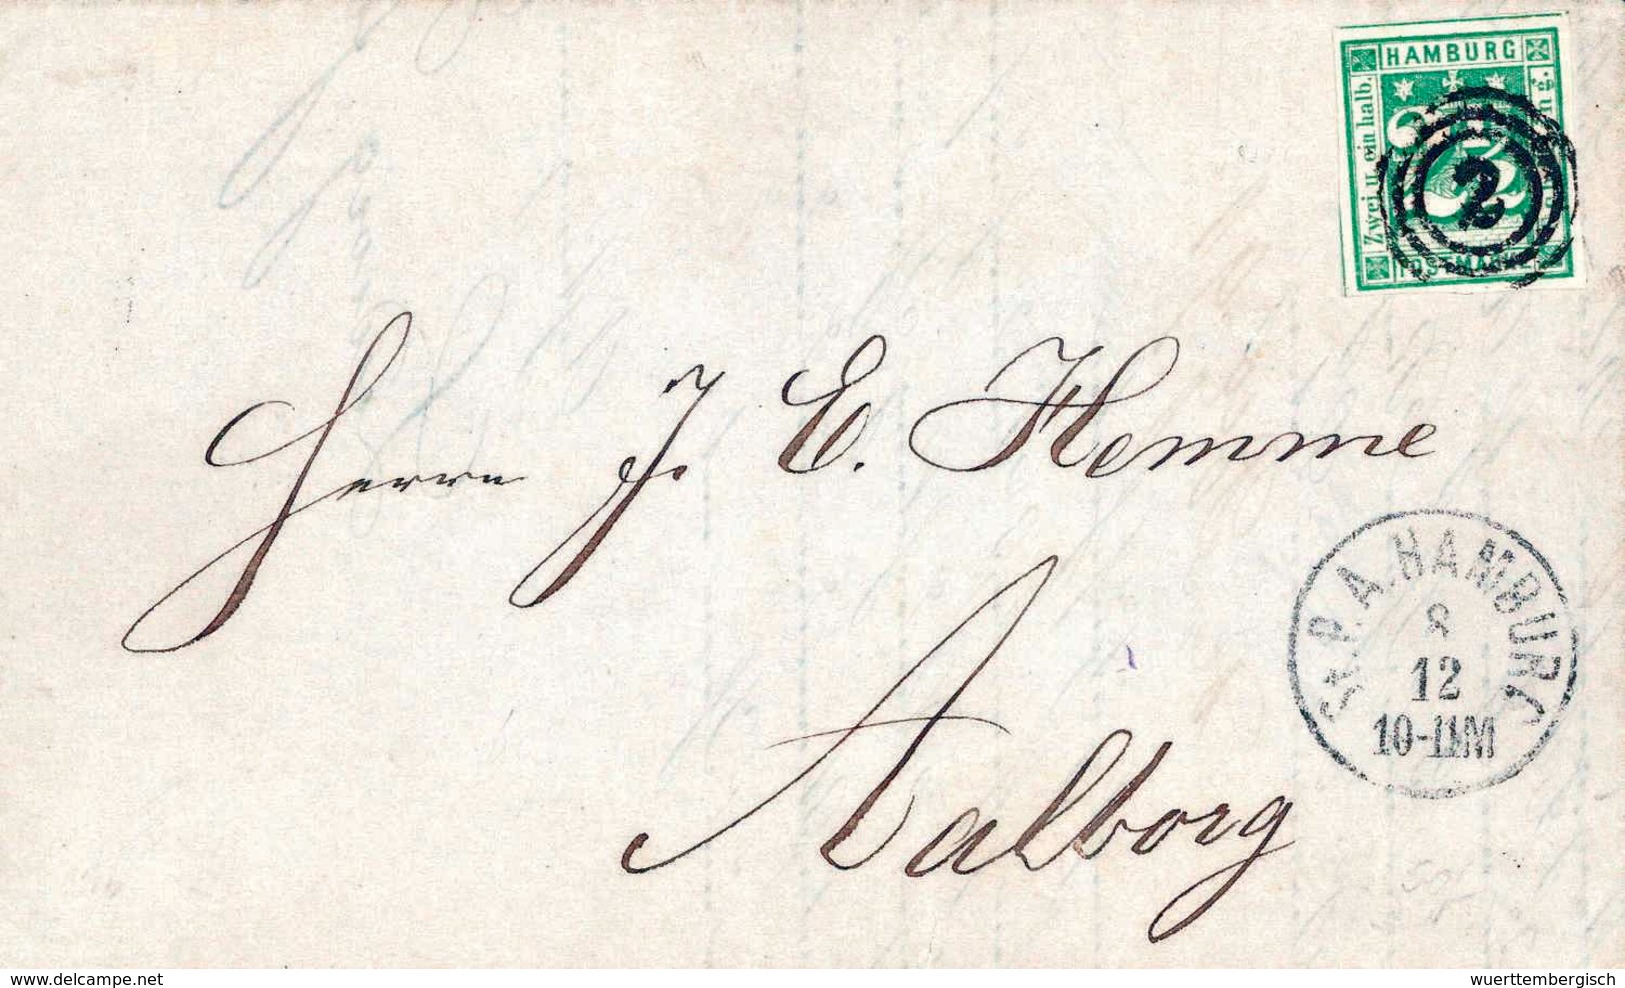 HAMBURG
Zwei u. ein halb.
POSTMARKE
2
Herrn J. E. Hemme
Aalborg
St. P. A. HAMBURG
8
12
10-11M
delcampe.net
wuerttembergisch